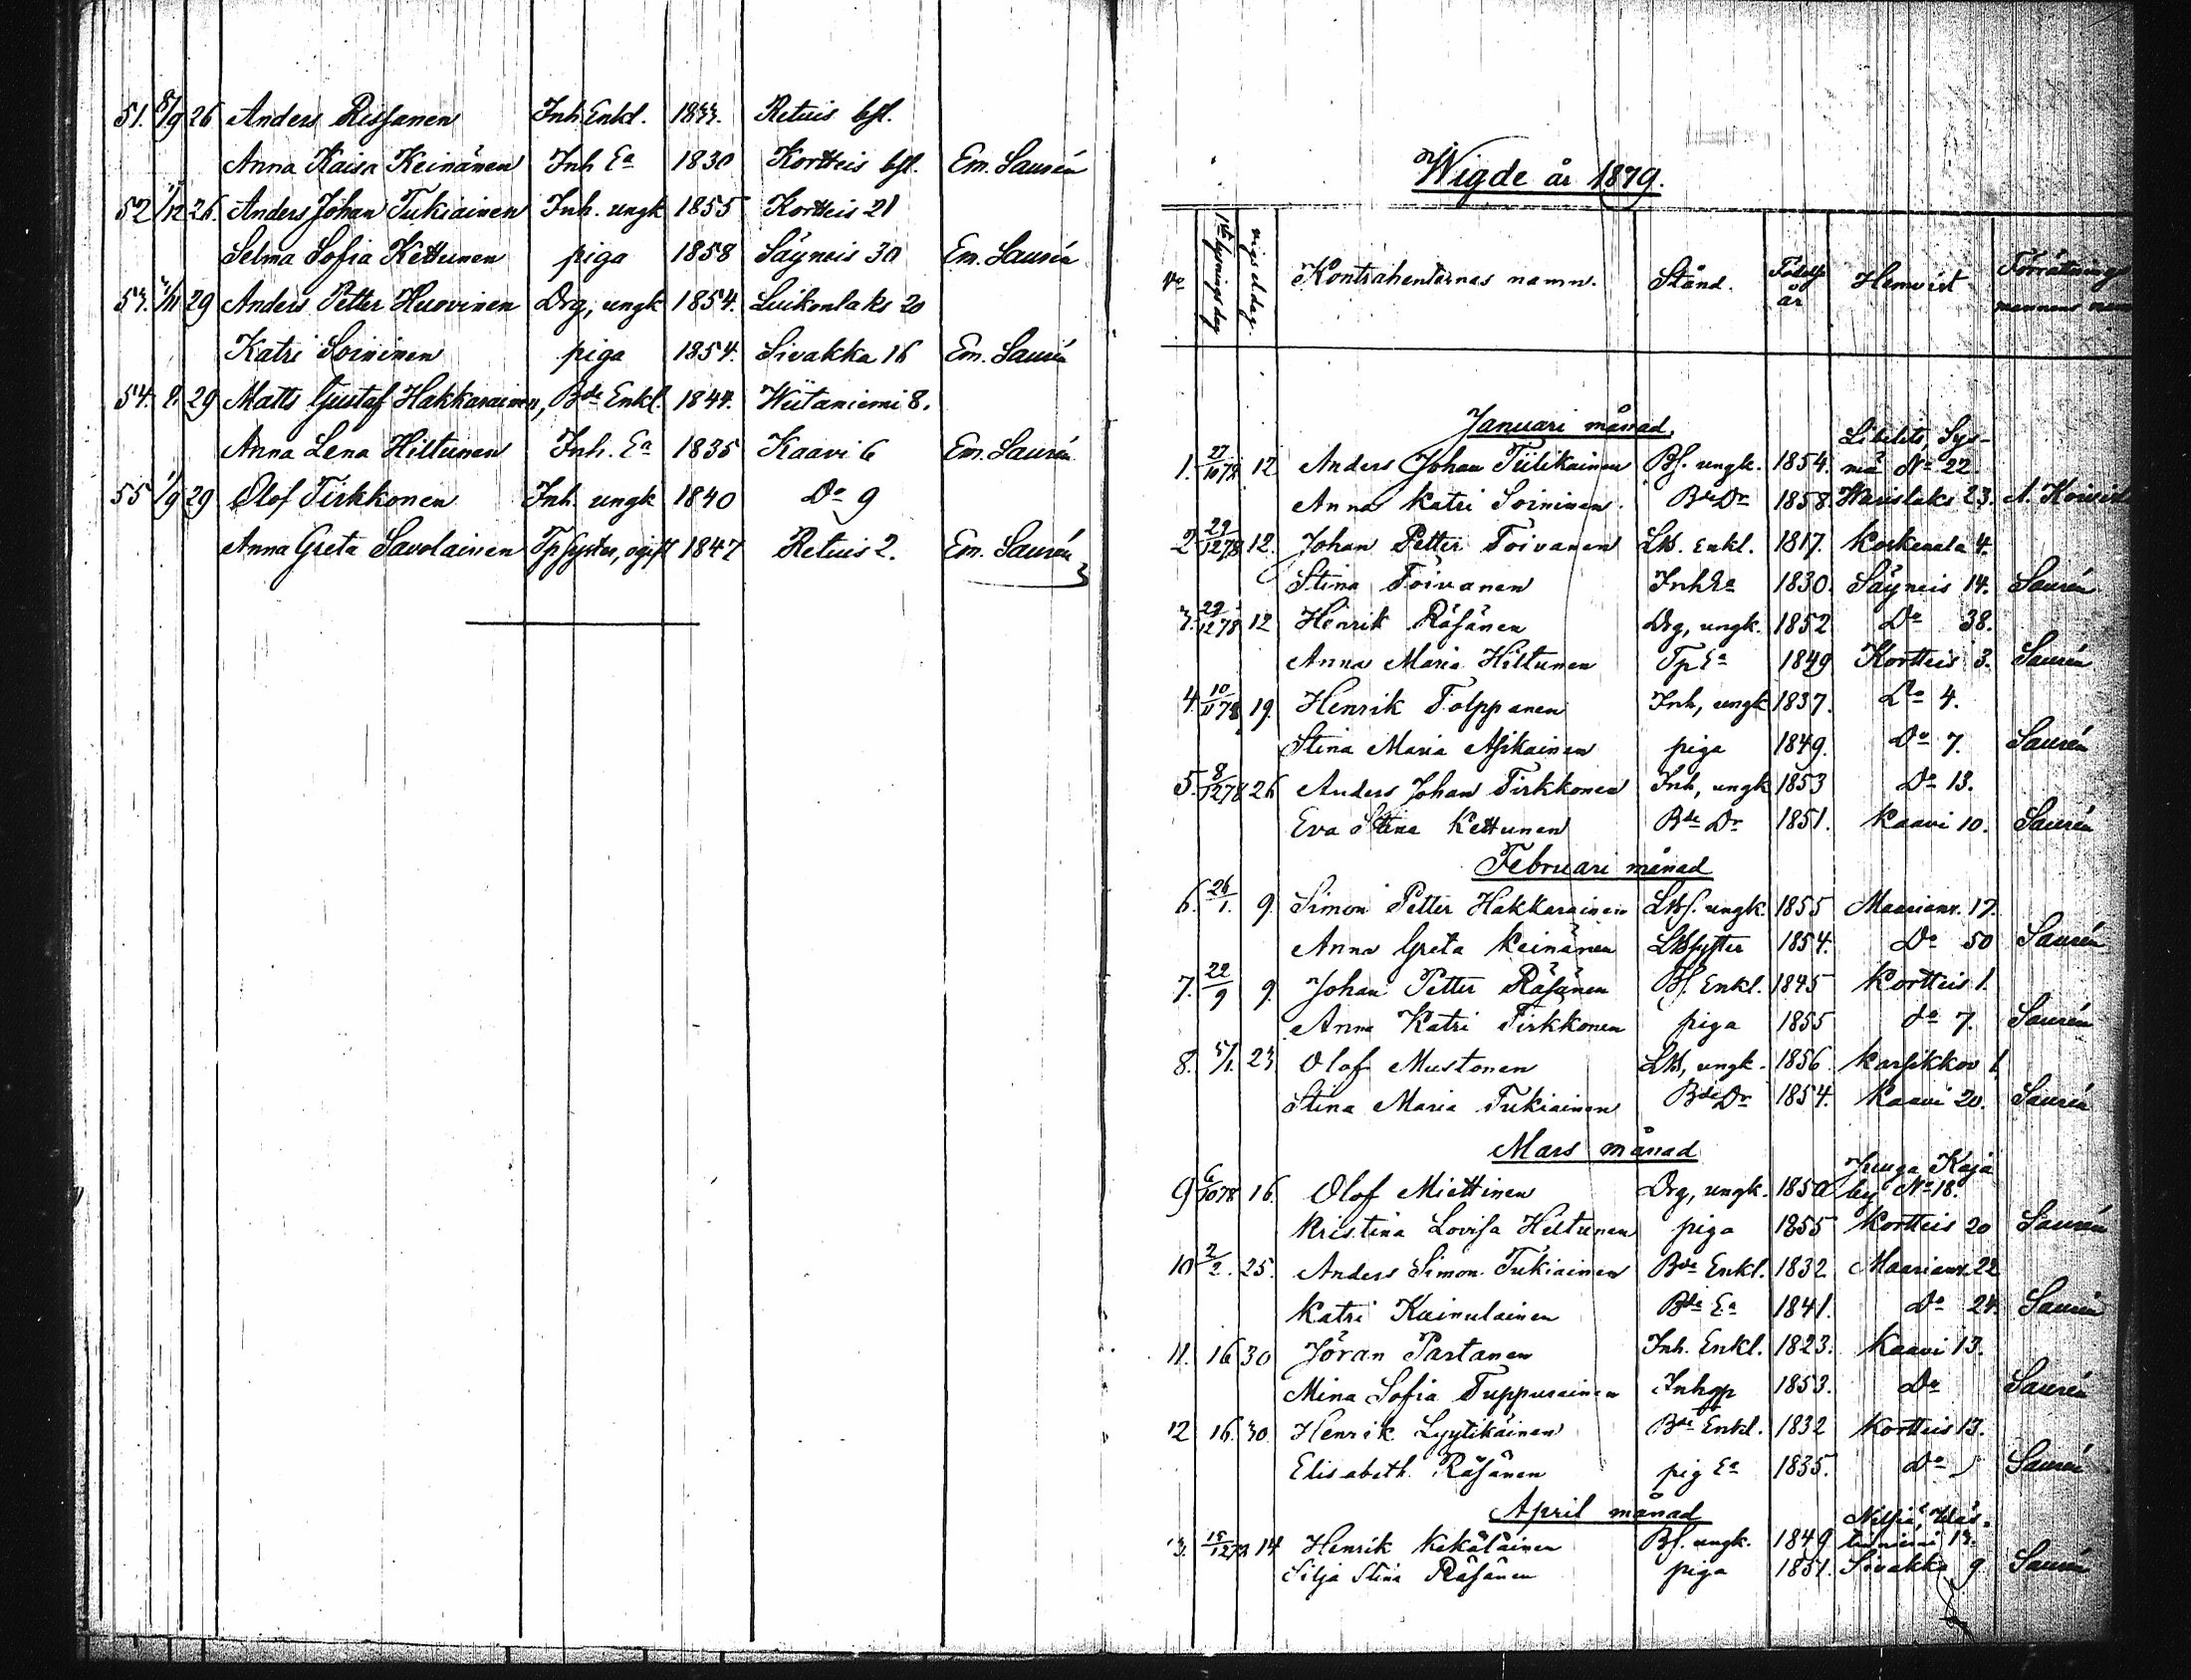 51. 8/9 26 Anders Rissanen Inh Enkl. 1833. Retuis bfl.
Anna Kaisa Keinänen Inh Ea 1830 Kortteis bfl. Em. Saurén
52 1/12 26. Anders Johan Tukiainen Inh. ungk 1855 Kortteis 21
Selma Sofia Kettunen piga 1858 Säyneis 30 Em. Saurén
53. 29 Anders Petter Huovinen Drg, ungk 1854. Luikonlaks 20
Katri Soininen piga 1854. Sivakka 16 Em. Saurén
54. 29 Matts Gustaf Hakkarainen, Bde Enkl. 1844. Wiitaniemi 8.
Anna Lena Hiltunen Inh. Ea 1835 Kaavi 6 Em. Saurén
55 1/9 29 Olof Tirkkonen Inh. ungk 1840 Do 9
Anna Greta Savolainen Tp syster, ogift 1847 Retuis 2. Em. Saurén
Wigde år 1879.
No 1sta lysningsdag vigseldag. Kontrahenternas namn. Stånd. Födelse år Hemvist Förrättningsmannens namn
Januari månad.
Libelits, Sys-
1. 27/10 78 12 Anders Johan Tiilikainen Bf. ungk. 1854. mä No 22.
Anna Katri Soininen Bde Dr 1858. Wauslaks 23.
2 29/12 78 12. Johan Petter Toivanen Lbd. Enkl. 1817. Koskenala 4.
Stina Toivanen Inh Ea 1830. Säyneis 14. Saurén
3. 29/12 78 12 Henrik Räsänen Drg, ungk. 1852 Do 38.
Anna Maria Hiltunen Tp Ea 1849 Kortteis 3. Saurén
4. 10/11 78 19. Henrik Tolppanen Inh, ungk 1837. Do 4.
Stina Maria Asikainen piga 1849. Do 7. Saurén
5. 8/12 78 26 Anders Johan Tirkkonen Inh, ungk 1853 Do 13.
Eva Stina Kettunen Bde Dr 1851. Kaavi 10. Saurén
Februari månad
6. 26/1. 9. Simon Petter Hakkarainen Lbf. ungk. 1855 Maarianv. 17.
Anna Greta Keinänen Lbsyster 1854. Do 50 Saurén
7. 22/9 9. Johan Petter Räsänen Bf. Enkl. 1845 Kortteis 1.
Anna Katri Tirkkonen piga 1855 do 7. Saurén
8. 5/1. 23. Olof Mustonen Lbd, ungk. 1856 Karsikkov 1.
Stina Maria Tukiainen Bde Dr 1854. Kaavi 20. Saurén
Mars månad
Juuga Kajå
9 6/10 78 16. Olof Miettinen Drg, ungk. 1850 by No 18.
Kristina Lovisa Hiltunen piga 1855 Kortteis 20 Saurén
10 2/2. 25. Anders Simon Tukiainen Bde Enkl. 1832 Maarianv. 22
Katri Kainulainen Bde Ea 1841. Do 24. Saurén
11. 16 30 Jöran Partanen Inh. Enkl. 1823. Kaavi 13.
Mina Sofia Tuppurainen Inhgp 1853. Do Saurén
12 16. 30. Henrik Lyytikäinen Bde Enkl. 1832 Kortteis 13.
Elisabeth Räsänen pig Ea 1835. Do Saurén
April månad
Nilsiä Wäs-
13. 15/12 78 14 Henrik Kekäläinen Bf. ungk. 1849 tiniemi 13.
Silja Stina Räsänen piga 1851. Sivakka 9 Saurén